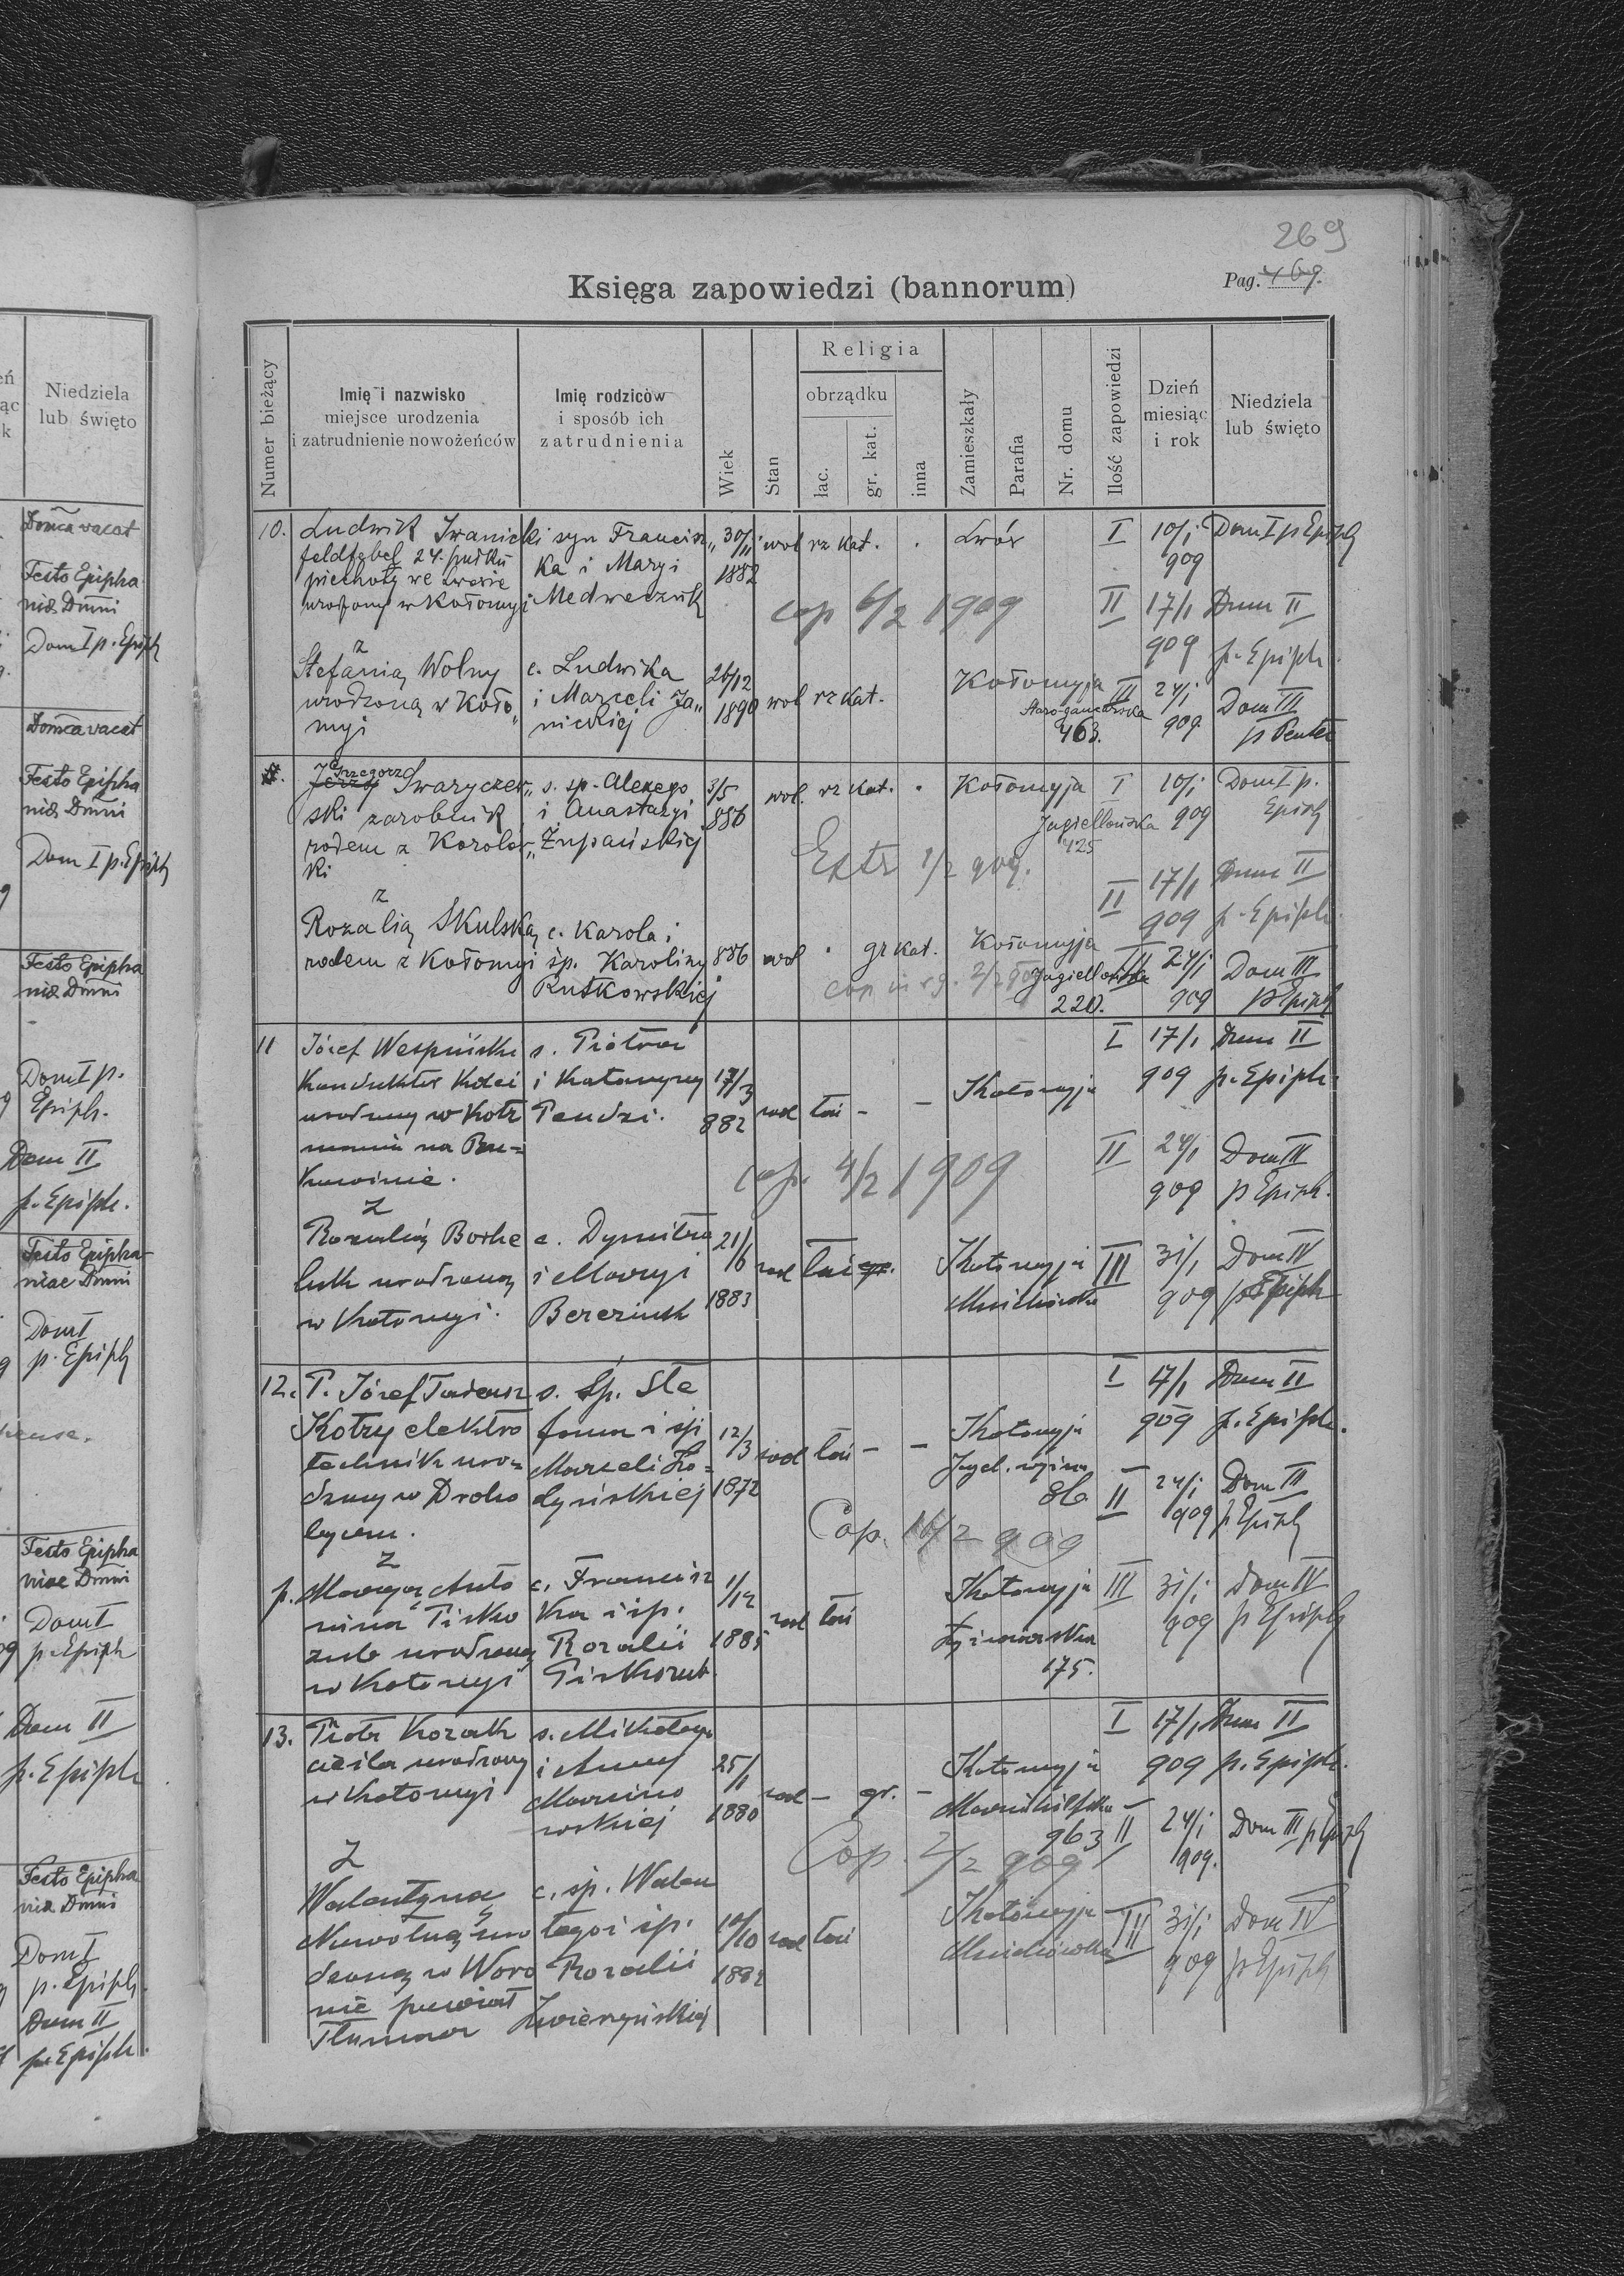 269
Księga zapowiedzi (bannorum)
Pag. 469.
Numer bieżący
Imię i nazwisko
miejsce urodzenia
i zatrudnienie nowożeńców
Imię rodziców
i sposób ich
zatrudnienia
Wiek
Stan
Religia
obrządku
łac.
gr. kat.
inna
Zamieszkały
Parafia
Nr. domu
Ilość zapowiedzi
Dzień
miesiąc
i rok
Niedziela
lub święto
10. Ludwik Iwanicki syn Francisz„ 30/11 wol rz kat. . Lwów I 10/1 Dom I p Epiph
feldfębel 24. pułku ka i Maryi 1882 909
piechoty we Lwowie Medweczuk
urodzony w Kołomyi
cop 6/2 1909 II 17/1 Dom II
909 p. Epiph.
z
Stefanią Wolny c. Ludwika 26/12 wol rz kat. Kołomyja III 24/1 Dom III
urodzoną w Koło„ i Marceli Ja„ 1890 463. 909 p Pentec
myi nickiej
Grzegorz
Jerzy Swaryczew„ s. sp. Alexego 3/5 wol. rz kat. . Kołomyja I 10/1 Dom I p.
ski zarobnik i Anastazyi 886 Jagiellońska 909 Epiph
rodem z Korolów„ Żupańskiej 425
ki
Extr 1/2 909.
II 17/1 Dom II
909 p. Epiph.
z
Rozalią Skulską c. Karola i 886 wol . gr kat. Kołomyja III 24/1 Dom III
rodem z Kołomyi śp. Karoliny Jagiellońska 909 p Epiph
Rutkowskiej 220.
11 Józef Wespiński s. Piotra 17/3 wol łać - - Kołomyja I 17/1 Dom II
Konduktor Kolei i Katarzyny 882 909 p. Epiph.
urodzony w Kotz Pendzi.
maniu na Bu=
kowinie.
cop. 4/2 1909 II 24/1 Dom III
909 p Epiph.
z
Rozalią Borke c. Dymitra 21/6 wol łać gr. Kołomyja III 31/1 Dom IV
luk urodzoną i Maryi 1883 Mnichówka 909 p Epiph
w Kołomyi. Bereziuk
12. P. Józef Tadeusz s. Śp. Ste I 17/1 Dom II
Kotzy elektro fana i śp 12/3 wol łać - - Kołomyja 909 p. Epiph.
technik uro= Marceli 1872 II 24/1 Dom III
dzony w Droho 909 p Epiph
byczu.
Cop. 16/2 909
z
p. Maryą Anto c. Francisz 1/12 wol łać Kołomyja III 31/1 Dom IV
nina Pisko ka i śp. 1885 909 p Epiph
zub urodzoną Rozalii 175.
w Kołomyi Piskozub
13. Piotr Kozak s. Mikołaja I 17/1 Dom II
cieśla urodzony i Anny 25/1 wol - gr. - Kołomyja 909 p. Epiph.
w Kołomyi 1880 963 II 24/1 Dom III p Epiph
wskiej 909.
Cop. 2/2 909
Z
Walentyną c. śp. Walen Kołomyja III 31/1 Dom IV
uro tego i śp. 10/10 wol łać Mnichówka 909 p Epiph
dzoną w Woro Rozalii 1882
nie powiat Zwierzyńskiej
Tłumacz
Domca vacat
Festo Epipha
niæ Dmni
Dom I p. Epiph
Domca vacat
Festo Epipha
niæ Dmni
Dom I p. Epiph
Festo Epipha
niæ Dmni
Dom I p.
Epiph.
Dom II
p. Epiph.
Festo Epipha
niae Dmni
Dom I
p. Epiph
Festo Epipha
niae Dmni
Dom I
p. Epiph
Dom II
p. Epiph
Festo Epipha
niæ Dmni
Dom I
p. Epiph.
Dom II
p. Epiph.